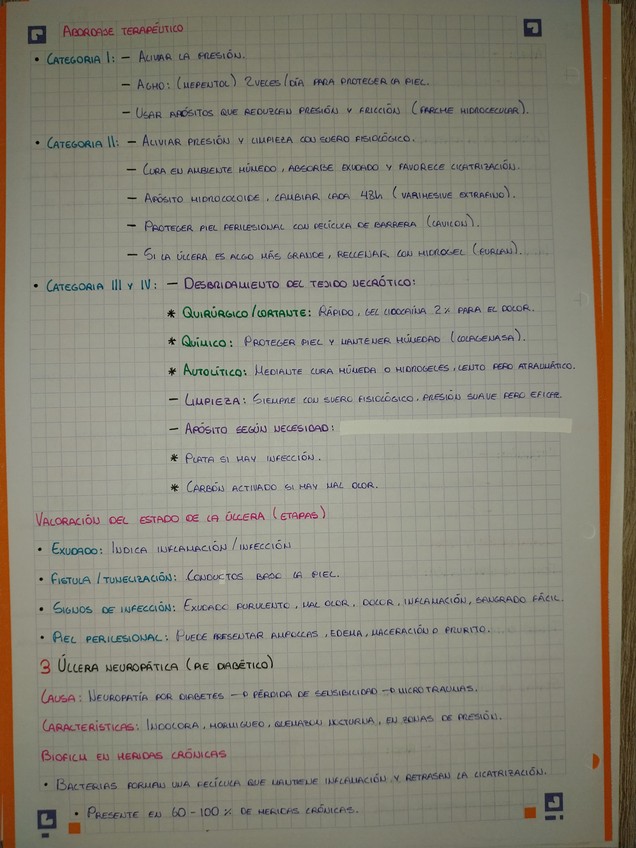 ABORDAJE TERAPÉUTICO
• CATEGORIA I: – ALIVIAR LA PRESIÓN.
– AGHO: (MEPENTOL) 2 VECES/DÍA PARA PROTEGER LA PIEL.
– USAR APÓSITOS QUE REDUZCAN PRESIÓN Y FRICCIÓN (PARCHE HIDROCELULAR).
• CATEGORIA II: – ALIVIAR PRESIÓN Y LIMPIEZA CON SUERO FISIOLÓGICO.
– CURA EN AMBIENTE HÚMEDO, ABSORBE EXUDADO Y FAVORECE CICATRIZACIÓN.
– APÓSITO HIDROCOLOIDE, CAMBIAR CADA 48h (VARIHESIVE EXTRAFINO).
– PROTEGER PIEL PERILESIONAL CON PELÍCULA DE BARRERA (CAVILON).
– SI LA ÚLCERA ES ALGO MÁS GRANDE, RELLENAR CON HIDROGEL (PURILAN).
• CATEGORIA III Y IV: – DESBRIDAMIENTO DEL TEJIDO NECRÓTICO:
* QUIRÚRGICO/CORTANTE: RÁPIDO, GEL LIDOCAÍNA 2% PARA EL DOLOR.
* QUÍMICO: PROTEGER PIEL Y MANTENER HÚMEDAD (COLAGENASA).
* AUTOLÍTICO: MEDIANTE CURA HÚMEDA O HIDROGELES, LENTO PERO ATRAUMÁTICO.
– LIMPIEZA: SIEMPRE CON SUERO FISIOLÓGICO, PRESIÓN SUAVE PERO EFICAZ.
– APÓSITO SEGÚN NECESIDAD:
* PLATA SI HAY INFECCIÓN.
* CARBÓN ACTIVADO SI HAY MAL OLOR.
VALORACIÓN DEL ESTADO DE LA ÚLCERA (ETAPAS)
• EXUDADO: INDICA INFLAMACIÓN/INFECCIÓN
• FISTULA/TUNELIZACIÓN: CONDUCTOS BAJO LA PIEL.
• SIGNOS DE INFECCIÓN: EXUDADO PURULENTO, MAL OLOR, DOLOR, INFLAMACIÓN, SANGRADO FÁCIL.
• PIEL PERILESIONAL: PUEDE PRESENTAR AMPOLLAS, EDEMA, MACERACIÓN O PRURITO.
3 ÚLCERA NEUROPÁTICA (PIE DIABÉTICO)
CAUSA: NEUROPATÍA POR DIABETES → PÉRDIDA DE SENSIBILIDAD → MICROTRAUMAS.
CARACTERÍSTICAS: INDOLORA, HORMIGUEO, QUEMAZÓN NOCTURNA, EN ZONAS DE PRESIÓN.
BIOFILM EN HERIDAS CRÓNICAS
• BACTERIAS FORMAN UNA PELÍCULA QUE MANTIENE INFLAMACIÓN Y RETRASAN LA CICATRIZACIÓN.
• PRESENTE EN 60-100 % DE HERIDAS CRÓNICAS.